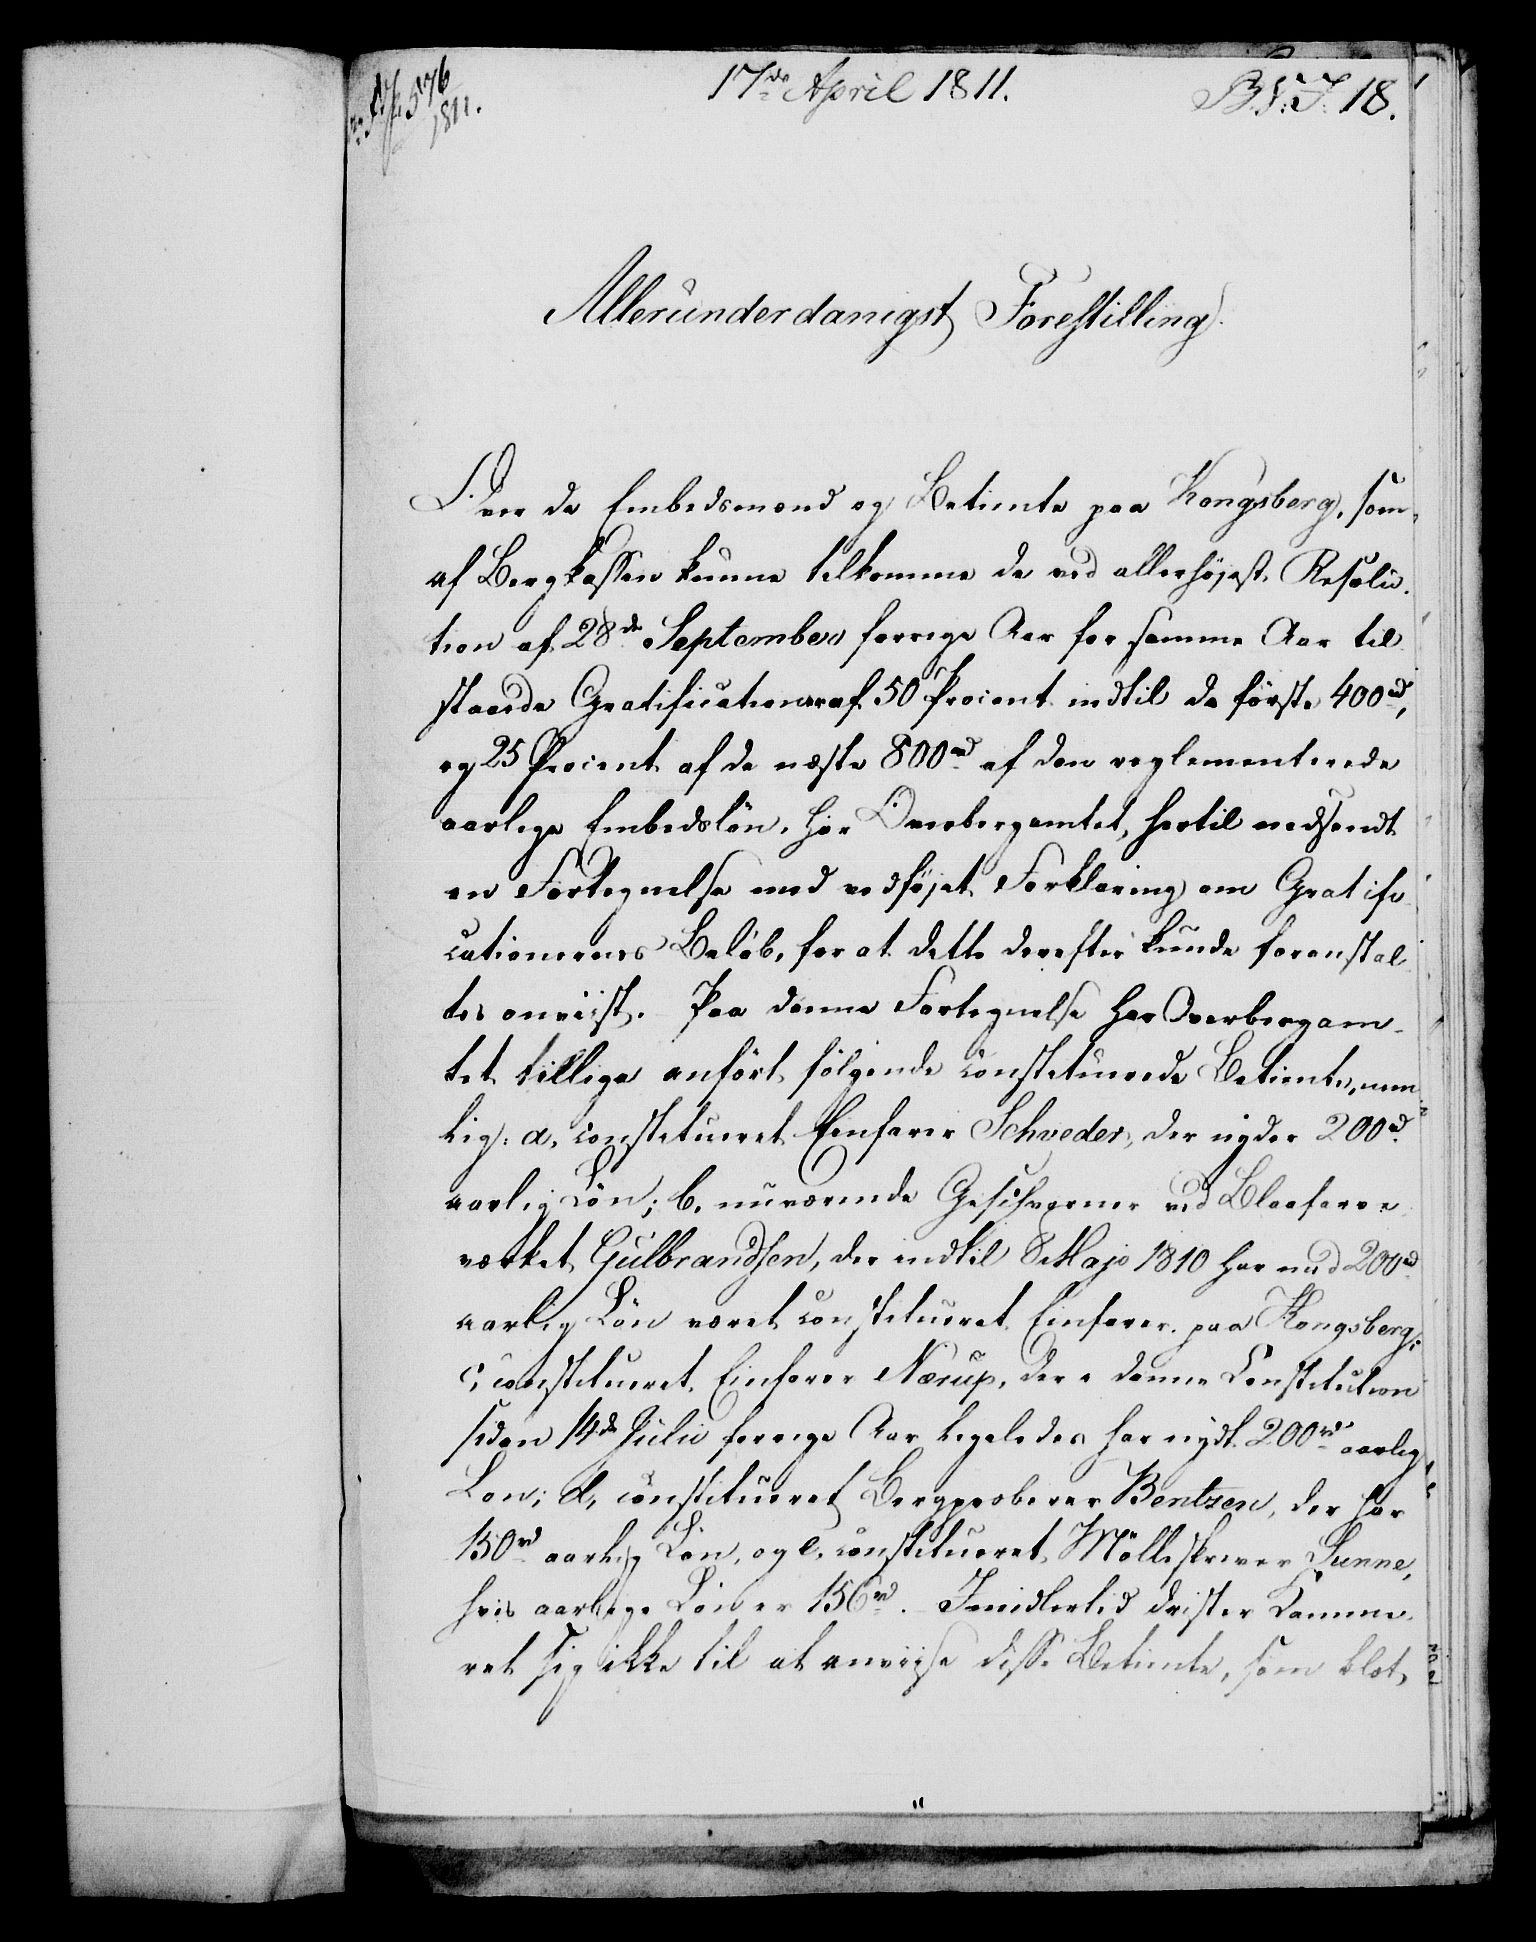 576
1811.
17de April 1811.
B. F: J: 18.
Allerunderdanigst Forestilling.
Over de Embedsmænd og Betiente paa Kongsberg, som
af Bergkassen kunne tilkomme de ved allerhöjest Resolu-
tion af 28de September forrige Aar for samme Aar til-
staaede Gratificationer af 50 Procent indtil de förste 400rd,
og 25 Procent af de næste 800rd af den reglementerede
aarlige Embedslön, har Overbergamtet, hertil nedsendt
en Fortegnelse med vedföjet Forklaring om Gratifi-
cationernes Belöb, for at dette derefter kunde foranstal-
tes anviist. Paa denne Fortegnelse har Overbergam-
tet tillige anfört fölgende constituerede Betiente, nem-
lig: a, constitueret Einfarer Schveder, der nyder 200rd
aarlig Lön; b, nuværende Geschvorner ved Blaafarve-
værket Gulbrandsen, der indtil 8 Majo 1810 har med 200rd
aarlig Lön været constitueret Einfarer paa Kongsberg;
c, constitueret Einfarer Nærup, der i denne Constitution
siden 14de Julii forrige Aar ligeledes har nydt 200rd aarlig
Lön; d, constitueret Bergproberer Bentzen, der har
150rd aarlig Lön, og e, constitueret Mölleskriver Sunne,
hvis aarlige Lön er 156rd. Imidlertid drister Kamme-
ret sig ikke til at anviise disse Betiente, som blot